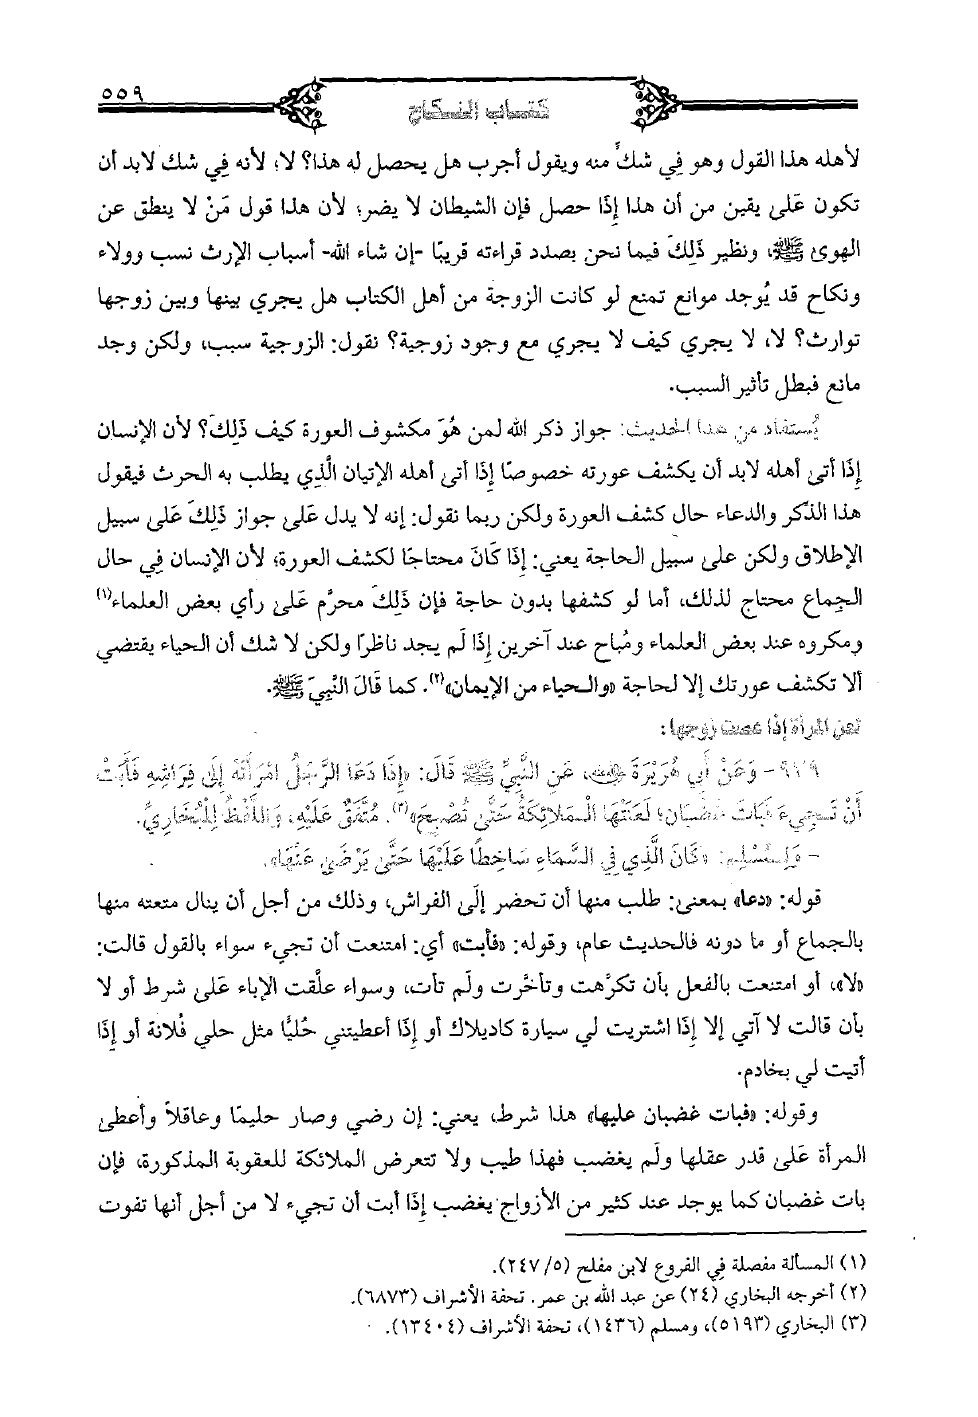 ٥٥٩
كتاب النكاح
لأهله هذا القول وهو فِي شكٍّ منه ويقول أجرب هل يحصل له هذا؟ لا؛ لأنه فِي شك لابد أن
تكون عَلَى يقين من أن هذا إِذَا حصل فإن الشيطان لا يضر؛ لأن هذا قول مَنْ لا ينطق عن
الهوى ﷺ، ونظير ذَلِكَ فيما نحن بصدد قراءته قريبًا -إن شاء الله- أسباب الإرث نسب وولاء
ونكاح قد يُوجد موانع تمنع لو كانت الزوجة من أهل الكتاب هل يجري بينها وبين زوجها
توارث؟ لا، لا يجري كيف لا يجري مع وجود زوجية؟ نقول: الزوجية سبب، ولكن وجد
مانع فبطل تأثير السبب.
يُستفاد من هذا الحديث: جواز ذكر الله لمن هُوَ مكشوف العورة كيف ذَلِكَ؟ لأن الإنسان
إِذَا أتى أهله لابد أن يكشف عورته خصوصًا إِذَا أتى أهله الإتيان الَّذِي يطلب به الحرث فيقول
هذا الذكر والدعاء حال كشف العورة ولكن ربما نقول: إنه لا يدل عَلَى جواز ذَلِكَ عَلَى سبيل
الإطلاق ولكن على سبيل الحاجة يعني: إِذَا كَانَ محتاجًا لكشف العورة؛ لأن الإنسان فِي حال
الجماع محتاج لذلك، أما لو كشفها بدون حاجة فإن ذَلِكَ محرَّم عَلَى رأي بعض العلماء(١)
ومكروه عند بعض العلماء ومُباح عند آخرين إِذَا لَم يجد ناظرًا ولكن لا شك أن الحياء يقتضي
ألا تكشف عورتك إلا لحاجة «والحياء من الإيمان»(٢). كما قَالَ النَّبِيّ ﷺ.
لعن المرأة إِذَا عصت زوجها:
٩٧٩- وَعَنْ أَبِي هُرَيْرَةَ رضي الله عنه، عَنِ النَّبِيِّ ﷺ قَالَ: «إِذَا دَعَا الرَّجُلُ امْرَأَتَهُ إِلَى فِرَاشِهِ فَأَبَتْ
أَنْ تَجِيءَ فَبَاتَ غَضْبَانَ؛ لَعَنَتْهَا الْمَلَائِكَةُ حَتَّى تُصْبِحَ»(٣). مُتَّفَقٌ عَلَيْهِ، وَاللَّفْظُ لِلْبُخَارِيِّ.
- وَلِمُسْلِمٍ: «كَانَ الَّذِي فِي السَّمَاءِ سَاخِطًا عَلَيْهَا حَتَّى يَرْضَى عَنْهَا».
قوله: «دعا» بمعنى: طلب منها أن تحضر إلَى الفراش، وذلك من أجل أن ينال متعته منها
بالجماع أو ما دونه فالحديث عام، وقوله: «فأبت» أي: امتنعت أن تجيء سواء بالقول قالت:
«لا»، أو امتنعت بالفعل بأن تكرَّهت وتأخَّرت ولَم تأت، وسواء علَّقت الإباء عَلَى شرط أو لا
بأن قالت لا آتي إلا إِذَا اشتريت لي سيارة كاديلاك أو إِذَا أعطيتني حُليًّا مثل حلي فُلانة أو إِذَا
أتيت لي بخادم.
وقوله: «فبات غضبان عليها» هذا شرط، يعني: إن رضي وصار حليمًا وعاقلاً وأعطى
المرأة عَلَى قدر عقلها ولَم يغضب فهذا طيب ولا تتعرض الملائكة للعقوبة المذكورة، فإن
بات غضبان كما يوجد عند كثير من الأزواج يغضب إِذَا أبت أن تجيء لا من أجل أنها تفوت
(١) المسألة مفصلة فِي الفروع لابن مفلح (٥/ ٢٤٧).
(٢) أخرجه البخاري (٢٤) عن عبد الله بن عمر. تحفة الأشراف (٦٨٧٣).
(٣) البخاري (٥١٩٣)، ومسلم (١٤٣٦)، تحفة الأشراف (١٣٤٠٤).